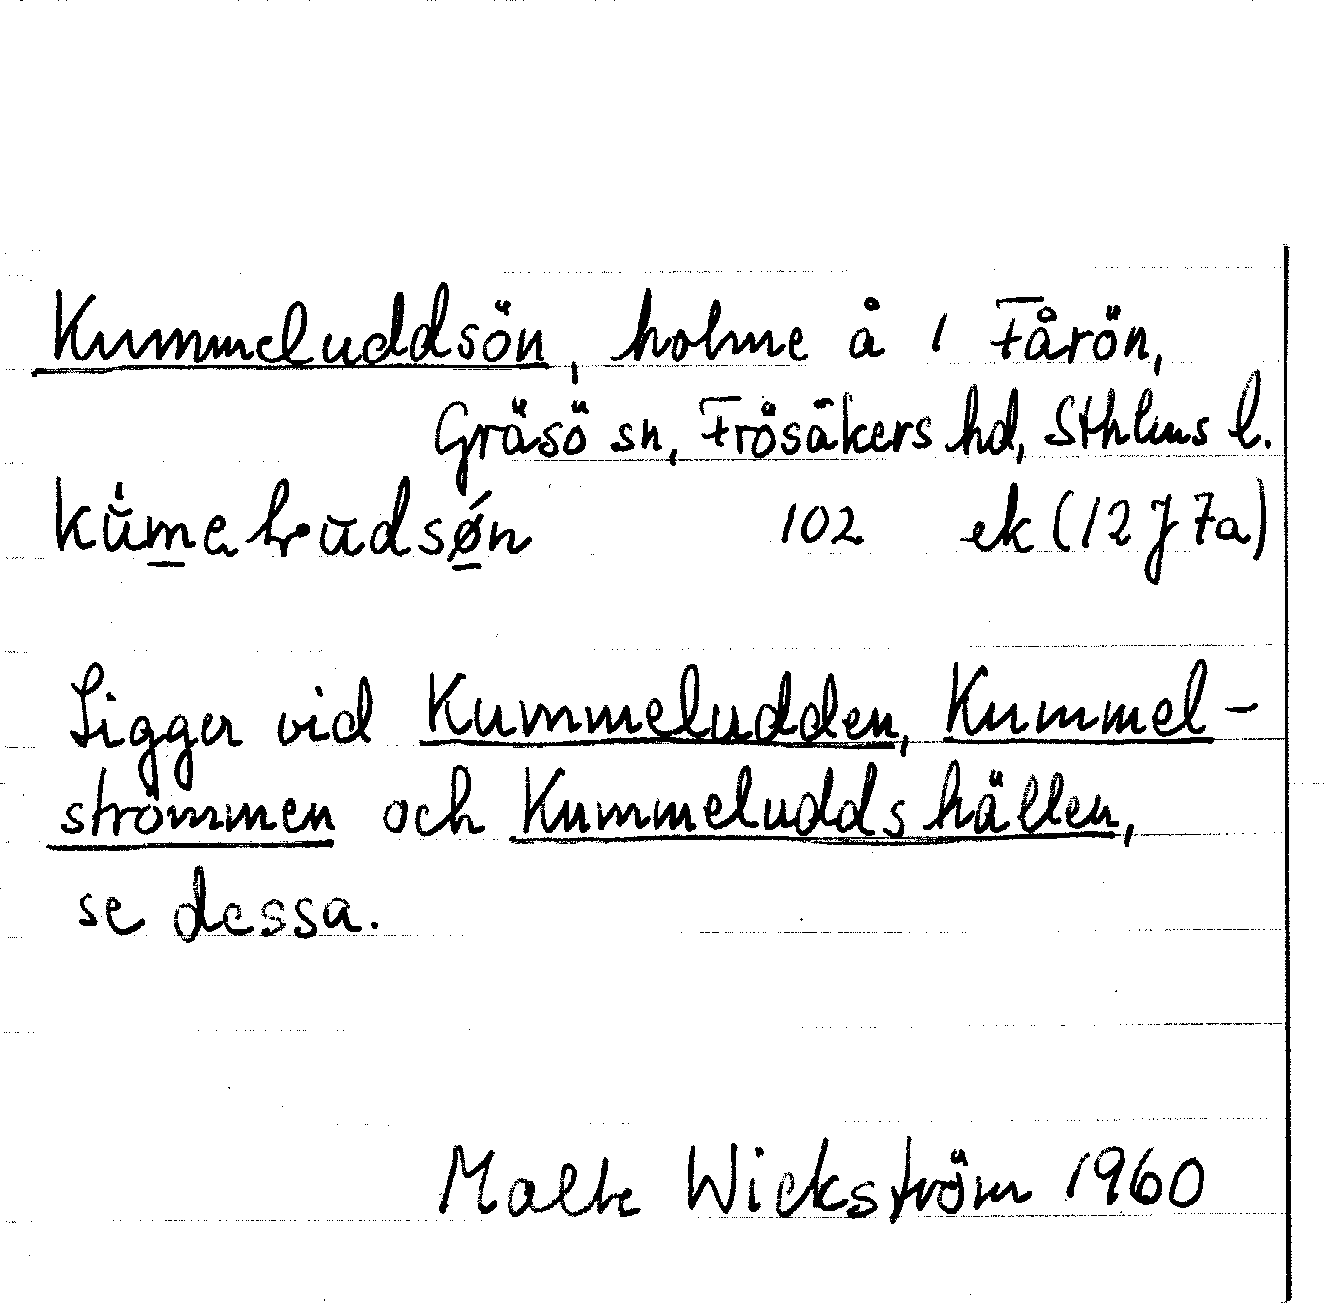 Kummeluddsön, holme å 1 Fårön,
Gräsö sn, Frösåkers hd, Sthlms l.
102 ek (12 J 7a)
Ligger vid Kummeludden, Kummel-
strömmen och Kummeluddshällen,
se dessa.
Malte Wickström 1960